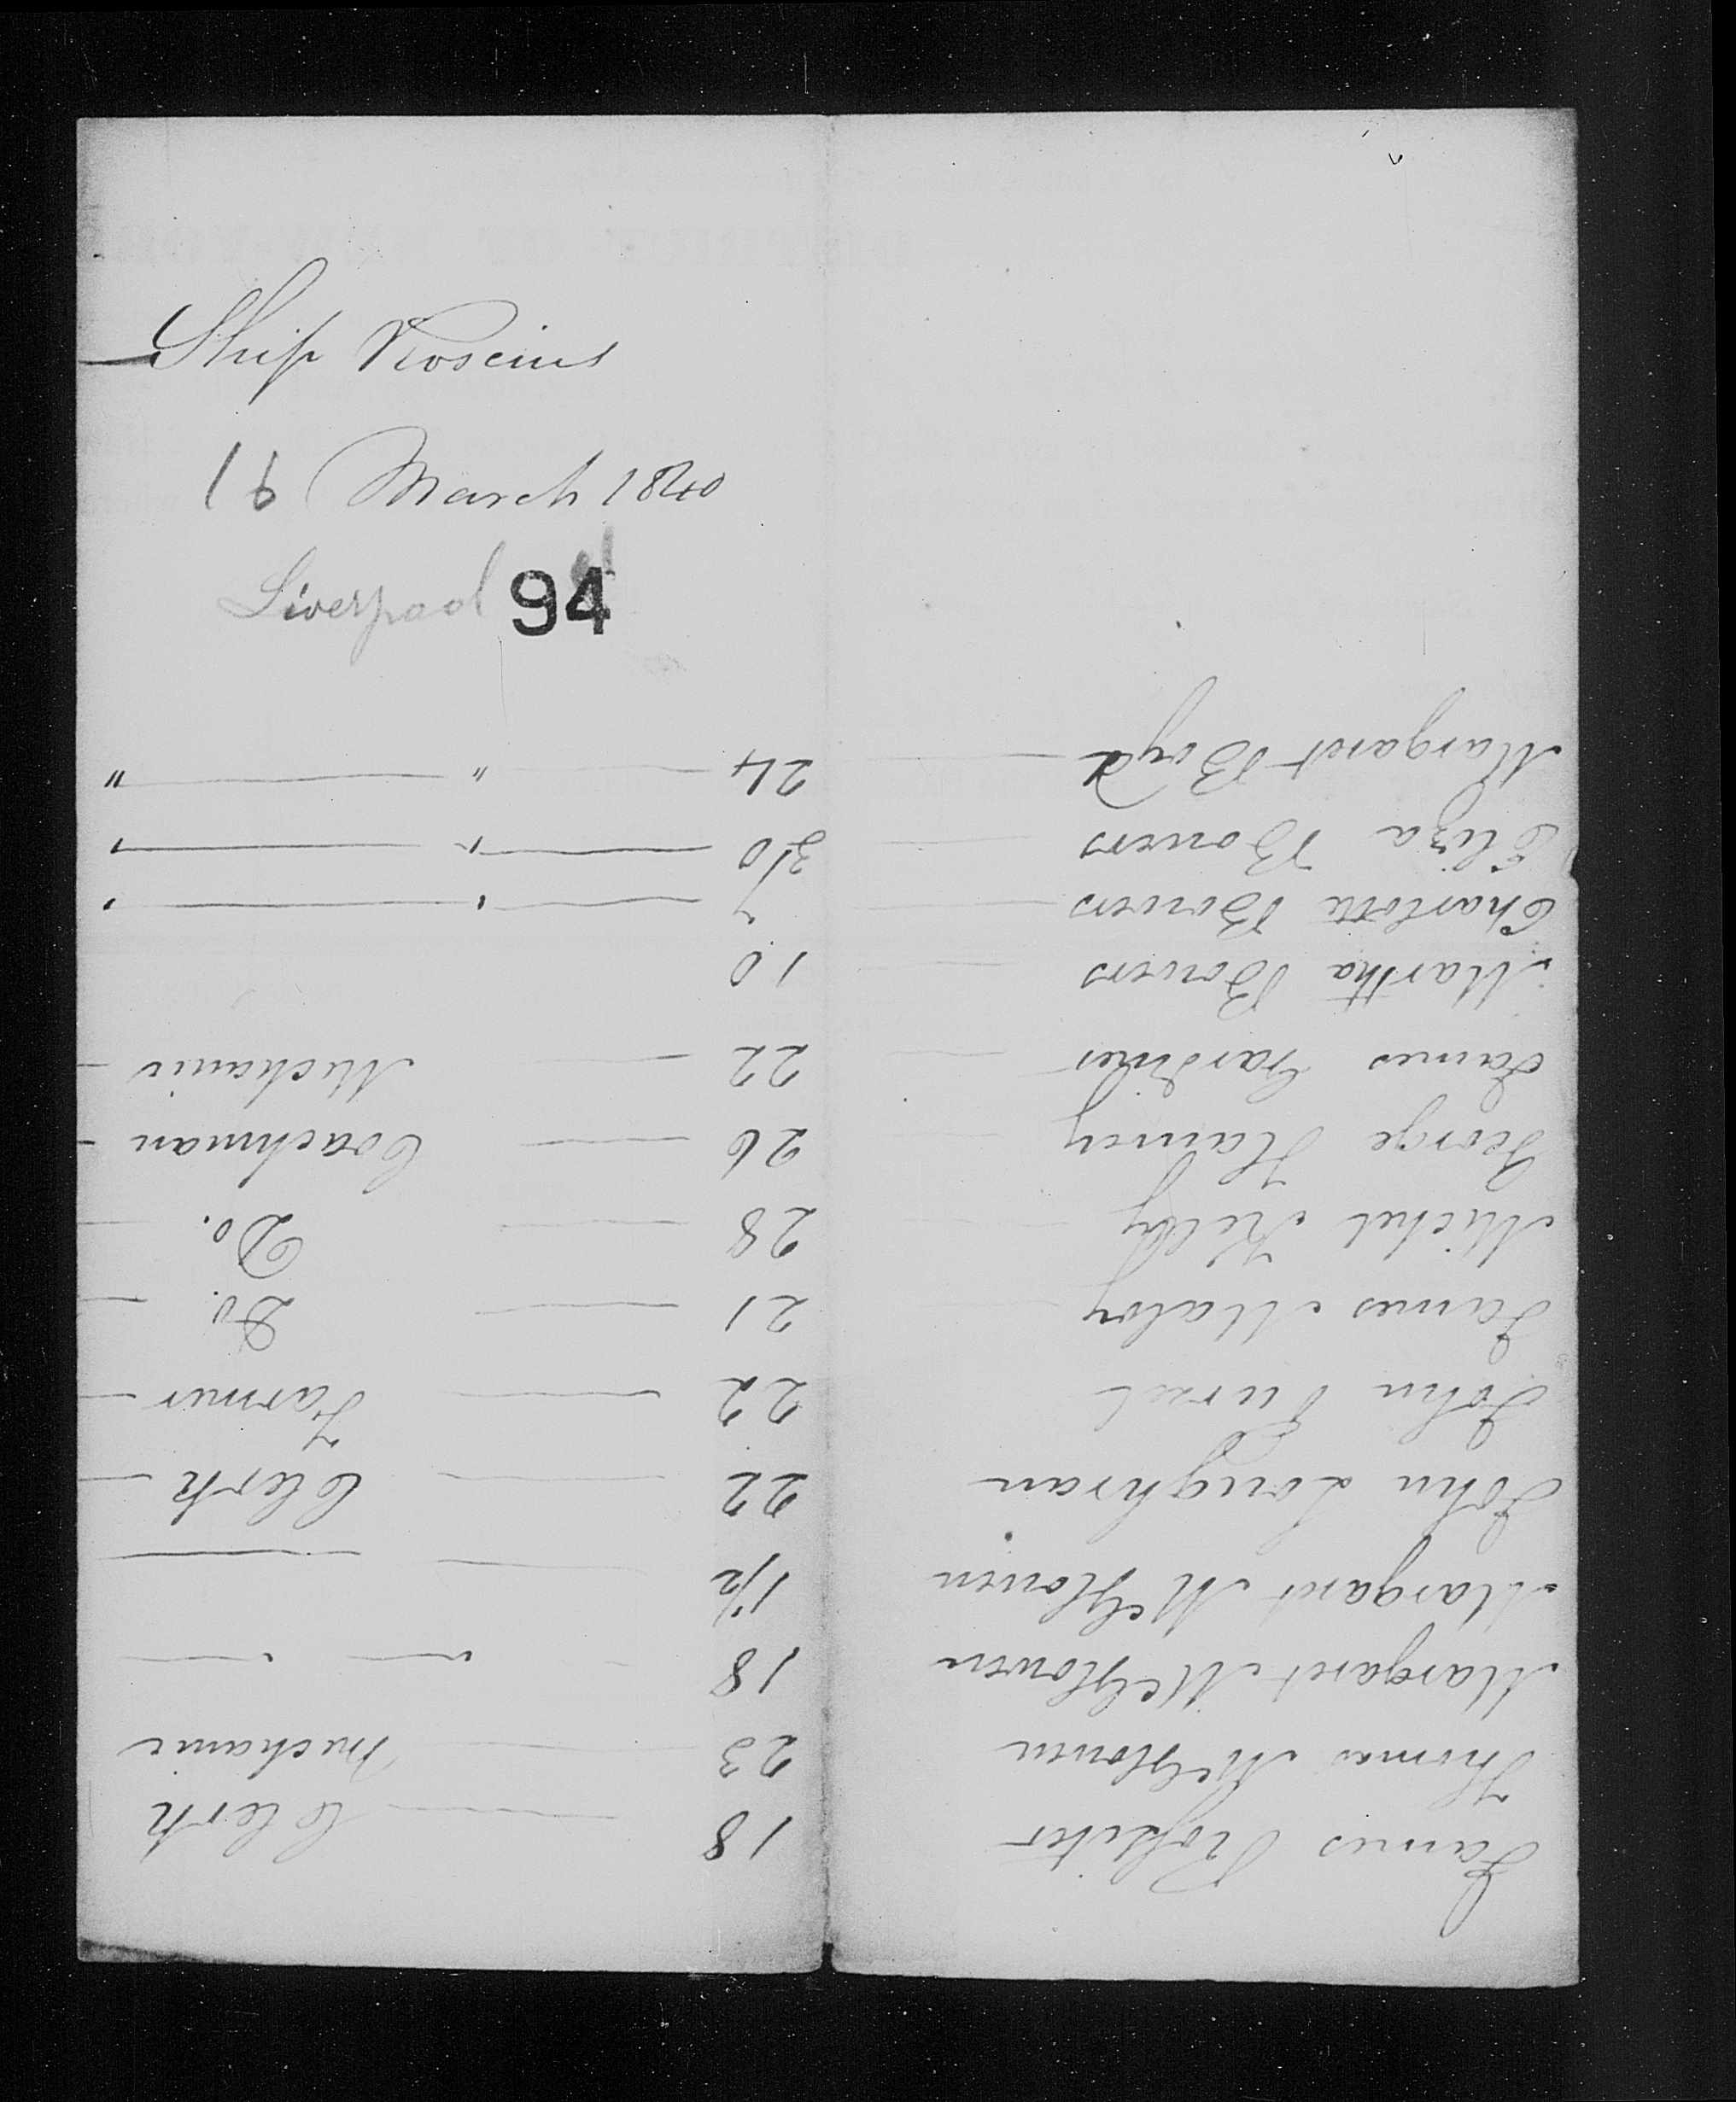 Ship Roscius
16 March 1840
Liverpool 94
James Rossiter 18 Clerk
Thomas McGlowen 23 Mechanic
Margaret McGlowen 18 " "
Margaret McGlowen 1½
John Loughran 22 Clerk
John Pursel 22 Farmer
James Maloy 21 Do.
Michel Kelly 28 Do.
George Hainey 26 Coachman
James Gardner 22 Mechanic
Martha Bowers 10
Charlotte Bowers 7 " "
Eliza Bowers 30 " "
Margaret Boyd 24 " "